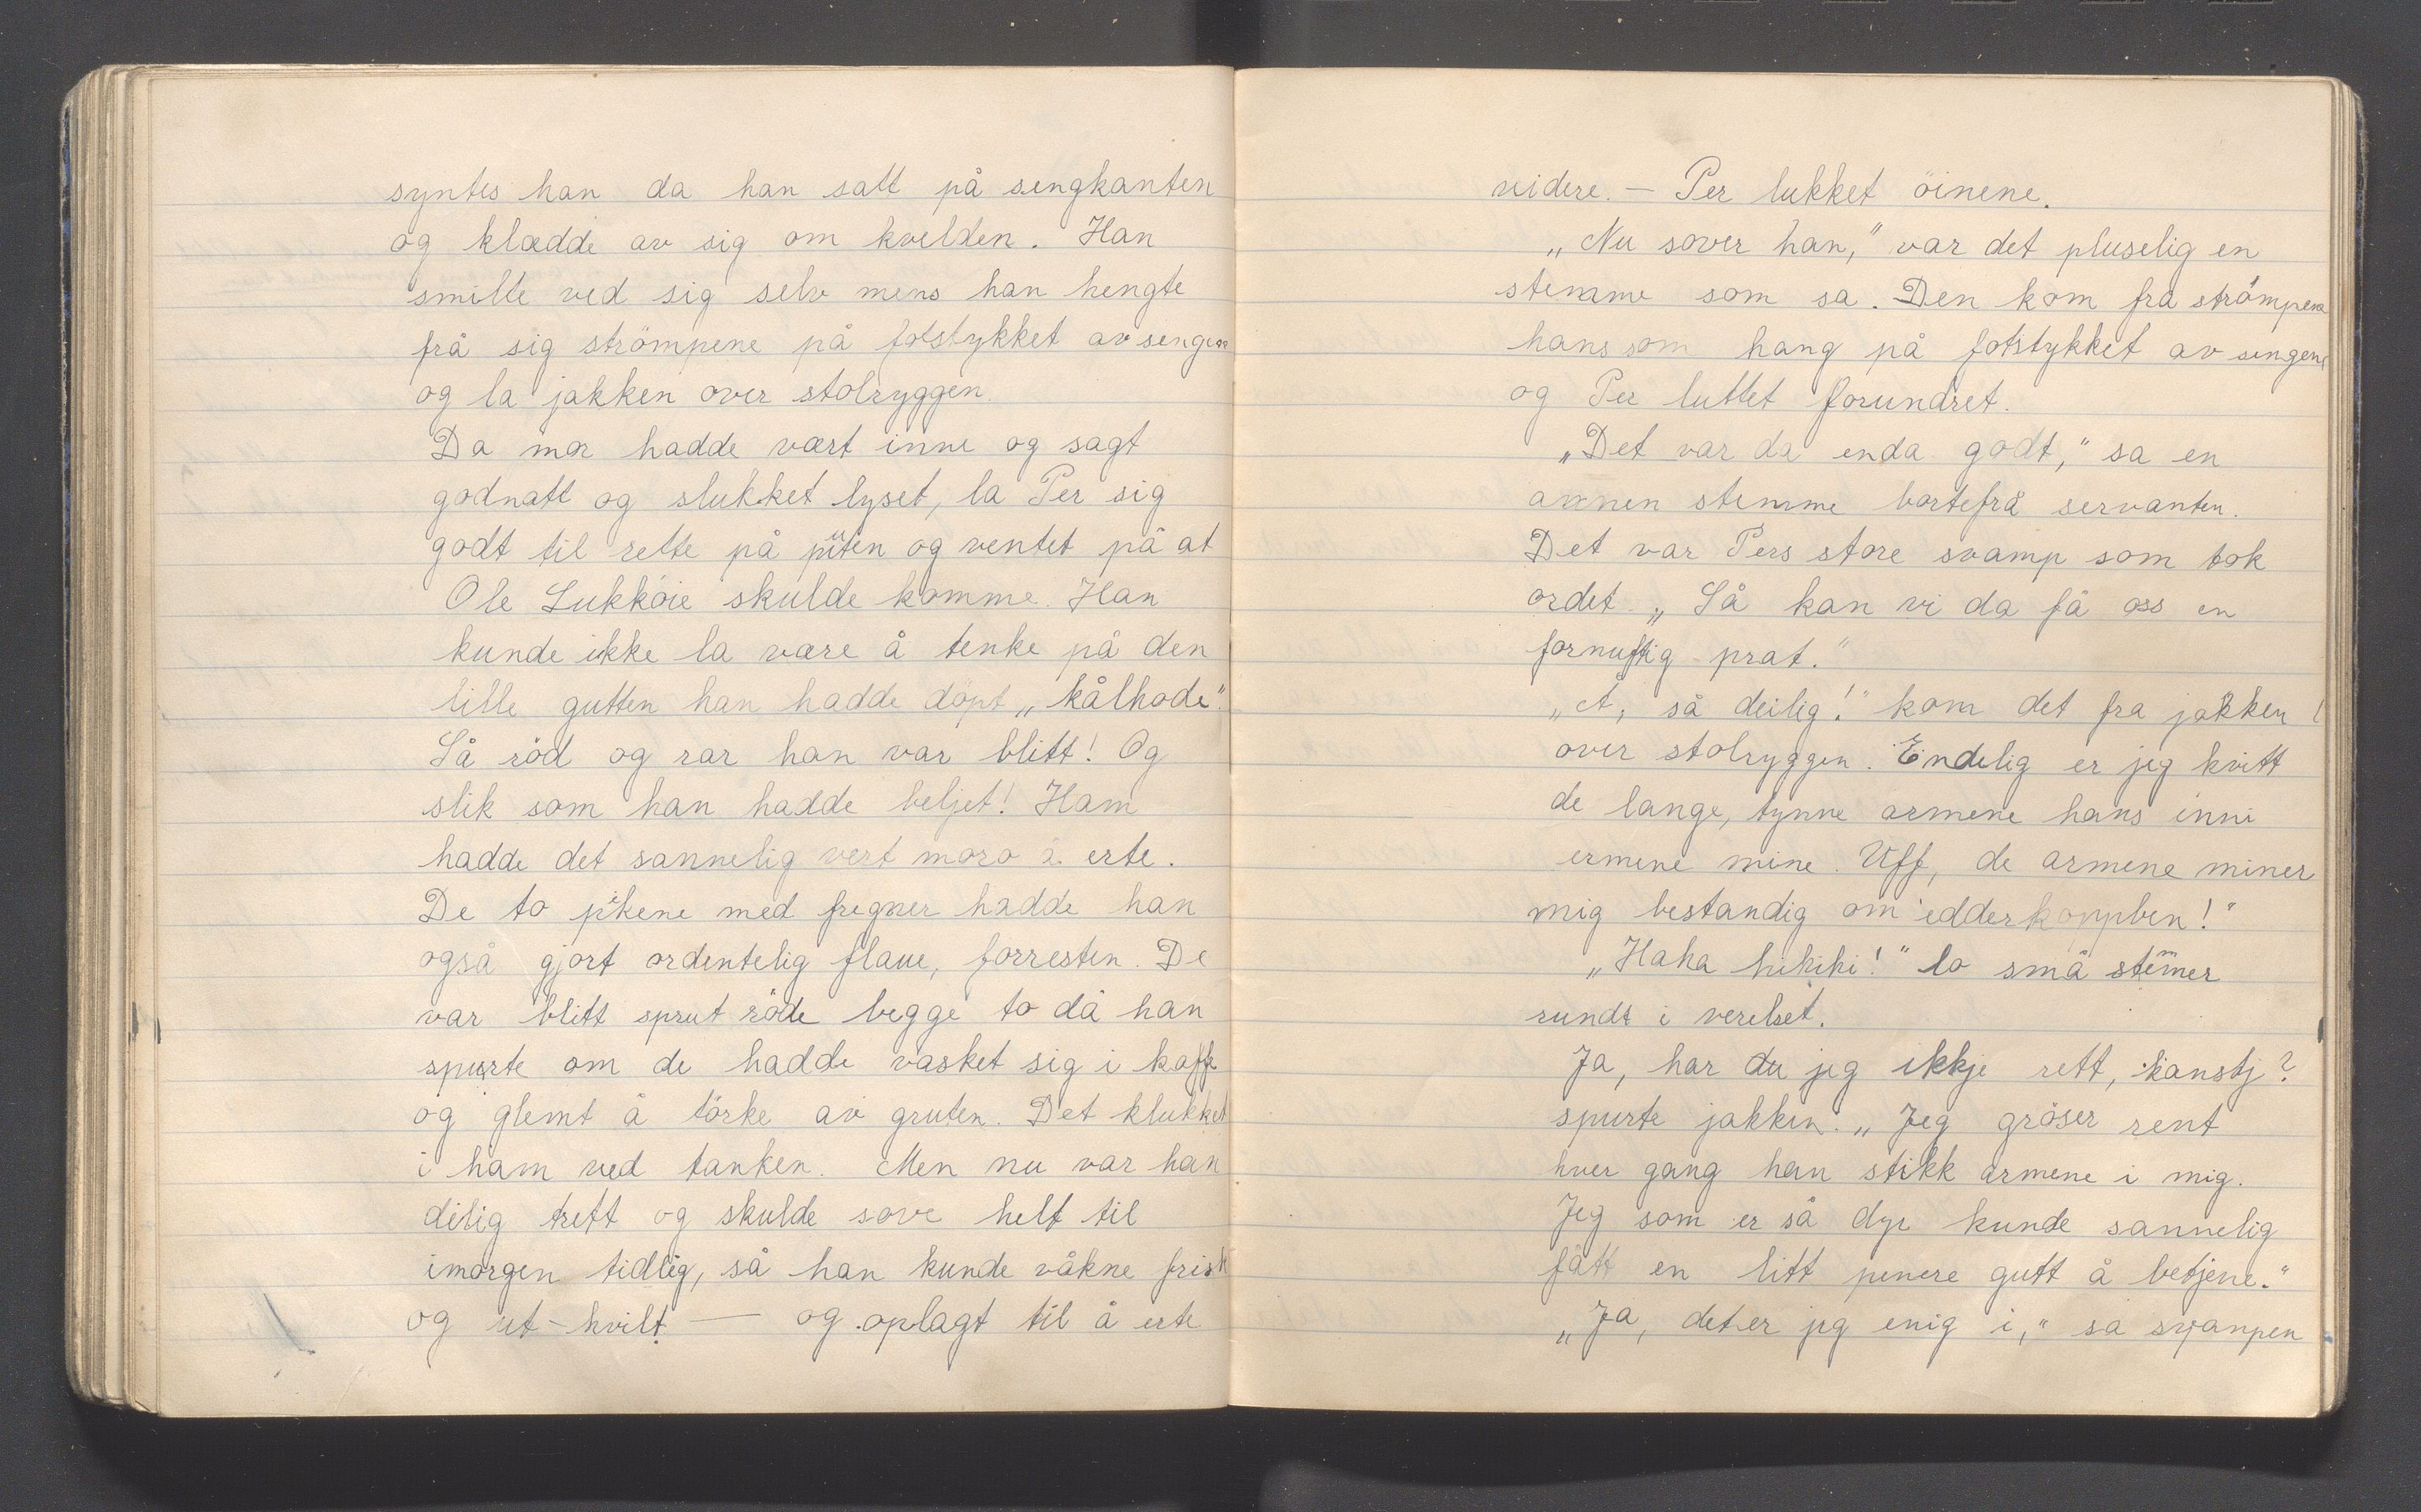 syntes han da han satt på sengkanten
og klædde av sig om kvelden. Han
smilte ved sig selv mens han hengte
frå sig strömpene på fotstykket av sengen
og la jakken over stolryggen.
Da mor hadde vært inne og sagt
godnatt og slukket lyset, la Per sig
godt til rette på püten og ventet på at
Ole Lukköie skulde komme. Han
kunde ikke la være å tenke på den
lille gutten han hadde döpt „kålhode".
Så röd og rar han var blitt! Og
slik som han hadde beljet! Ham
hadde det sannelig vert moro å erte.
De to pikene med fregner hadde han
også gjort ordentelig flaue, forresten. De
var blitt sprut röde begge to då han
spurte om de hadde vasket sig i kaffe
og glemt å törke av gruten. Det klukket
i ham ved tanken. Men nu var han
deilig trett og skulde sove helt til
imorgen tidlig, så han kunde våkne frisk
og ut-kvilt — og oplagt til å erte
videre. — Per lukket öinene.
„Nu sover han," var det pluselig en
stemme som sa. Den kom frå strömpene
hans som hang på fotstykket av sengen
og Per luttet forundret.
„Det var da enda godt," sa en
annen stemme bortefrå servanten.
Det var Pers store svamp som tok
ordet. „Så kan vi da få oss en
fornuftig prat."
„A, så deilig!" kom det fra jakken
over stolryggen. Endelig er jeg kvitt
de lange, tynne armene hans inni
ermene mine. Uff, de armene miner
mig bestandig om edderkoppben!"
„Haha hihihi!" lo små stemer
rundt i verelset.
Ja, har du jeg ikkje rett, kanstj?
spurte jakken. „Jeg gröser rent
hver gang han stikk armene i mig.
Jeg som er så dyr kunde sannelig
fått en litt penere gutt å betjene."
„Ja, det er jeg enig i," sa svampen